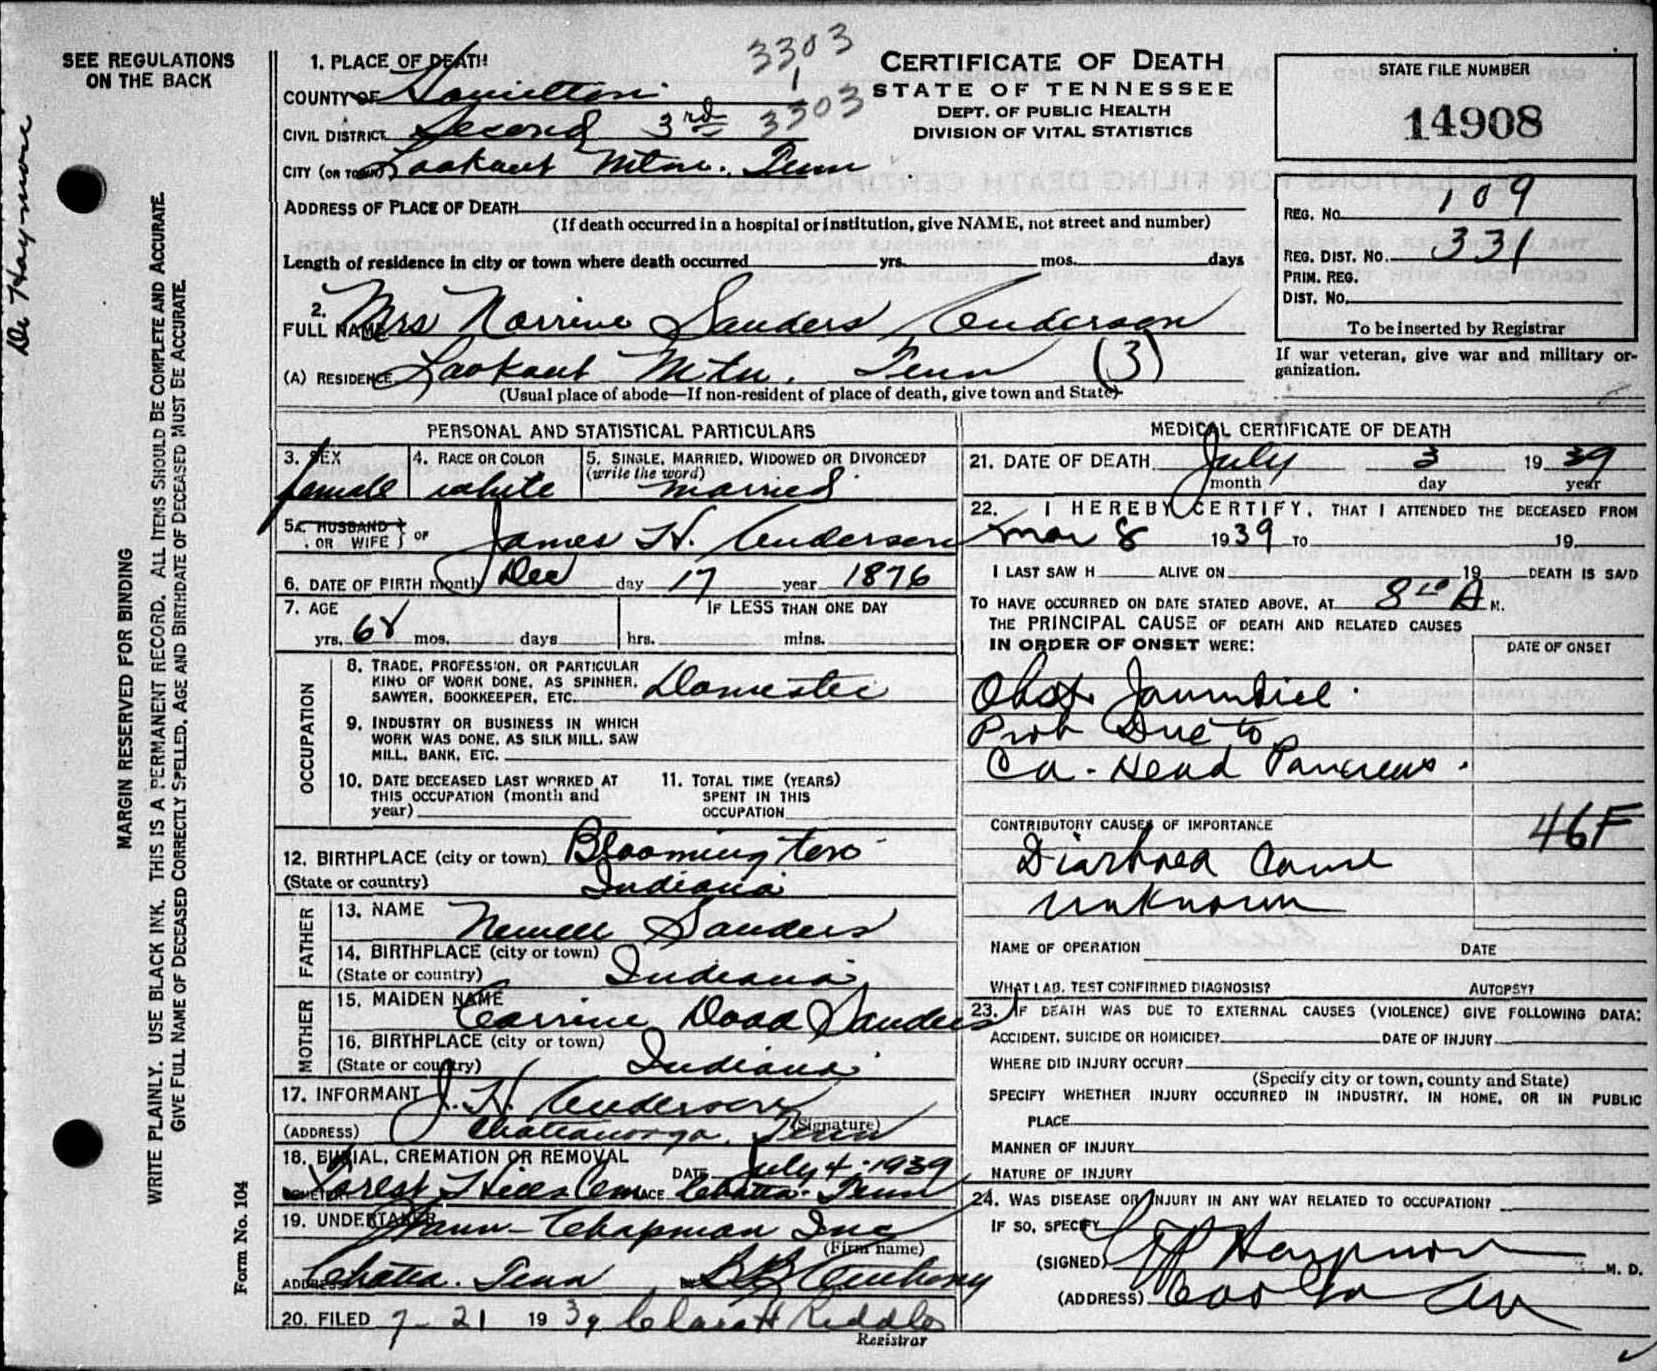 SEE REGULATIONS
ON THE BACK
Dr Haymore
MARGIN RESERVED FOR BINDING
WRITE PLAINLY. USE BLACK INK. THIS IS A PERMANENT RECORD. ALL ITEMS SHOULD BE COMPLETE AND ACCURATE.
GIVE FULL NAME OF DECEASED CORRECTLY SPELLED. AGE AND BIRTHDATE OF DECEASED MUST BE ACCURATE.
Form No. 104
3303
1
3303
CERTIFICATE OF DEATH
STATE OF TENNESSEE
DEPT. OF PUBLIC HEALTH
DIVISION OF VITAL STATISTICS
STATE FILE NUMBER
14908
REG. NO. 109
REG. DIST. NO. 331
PRIM. REG.
DIST. NO.
To be inserted by Registrar
If war veteran, give war and military or-
ganization.
1. PLACE OF DEATH
COUNTY OF Hamilton
CIVIL DISTRICT Second 3rd
CITY (OR TOWN) Lookout Mtn. Tenn
ADDRESS OF PLACE OF DEATH
(If death occurred in a hospital or institution, give NAME, not street and number)
Length of residence in city or town where death occurred yrs. mos. days
2. FULL NAME Mrs Norrine Sanders Anderson
(A) RESIDENCE Lookout Mtn. Tenn (3)
(Usual place of abode—If non-resident of place of death, give town and State)
PERSONAL AND STATISTICAL PARTICULARS
3. SEX female
4. RACE OR COLOR white
5. SINGLE, MARRIED, WIDOWED OR DIVORCED? (write the word) married
5A. HUSBAND OR WIFE } OF James H. Anderson
6. DATE OF BIRTH month Dec day 17 year 1876
7. AGE yrs. 62 mos. days IF LESS THAN ONE DAY hrs. mins.
OCCUPATION
8. TRADE, PROFESSION, OR PARTICULAR
KIND OF WORK DONE, AS SPINNER,
SAWYER, BOOKKEEPER, ETC. Domestic
9. INDUSTRY OR BUSINESS IN WHICH
WORK WAS DONE, AS SILK MILL, SAW
MILL, BANK, ETC.
10. DATE DECEASED LAST WORKED AT
THIS OCCUPATION (month and
year)
11. TOTAL TIME (YEARS)
SPENT IN THIS
OCCUPATION
12. BIRTHPLACE (city or town) Bloomington
(State or country) Indiana
FATHER
13. NAME Newell Sanders
14. BIRTHPLACE (city or town)
(State or country) Indiana
MOTHER
15. MAIDEN NAME Corrine Dodd Sanders
16. BIRTHPLACE (city or town)
(State or country) Indiana
17. INFORMANT J. H. Anderson
(Signature)
(ADDRESS) Chattanooga, Tenn
18. BURIAL, CREMATION OR REMOVAL DATE July 4 - 1939
CEMETERY Forest Hills Cem PLACE Chatta. Tenn
19. UNDERTAKER Wann-Chapman Inc
(Firm name)
ADDRESS Chatta. Tenn B B Anthony
20. FILED 7-21 1939 Clara H Riddles
Registrar
MEDICAL CERTIFICATE OF DEATH
21. DATE OF DEATH July 3 1939
month day year
22. I HEREBY CERTIFY, THAT I ATTENDED THE DECEASED FROM
Mar 8 1939 TO 19
I LAST SAW H ALIVE ON 19 DEATH IS SAID
TO HAVE OCCURRED ON DATE STATED ABOVE, AT 8 10 A M.
THE PRINCIPAL CAUSE OF DEATH AND RELATED CAUSES
IN ORDER OF ONSET WERE: DATE OF ONSET
Obst Jaundice.
Prob Due to
Ca - Head Pancreas.
46F
CONTRIBUTORY CAUSES OF IMPORTANCE
Diarhoea Cause
unknown
NAME OF OPERATION DATE
WHAT LAB. TEST CONFIRMED DIAGNOSIS? AUTOPSY?
23. IF DEATH WAS DUE TO EXTERNAL CAUSES (VIOLENCE) GIVE FOLLOWING DATA:
ACCIDENT, SUICIDE OR HOMICIDE? DATE OF INJURY
WHERE DID INJURY OCCUR?
(Specify city or town, county and State)
SPECIFY WHETHER INJURY OCCURRED IN INDUSTRY, IN HOME, OR IN PUBLIC
PLACE
MANNER OF INJURY
NATURE OF INJURY
24. WAS DISEASE OR INJURY IN ANY WAY RELATED TO OCCUPATION?
IF SO, SPECIFY
(SIGNED) Haymore M. D.
(ADDRESS)